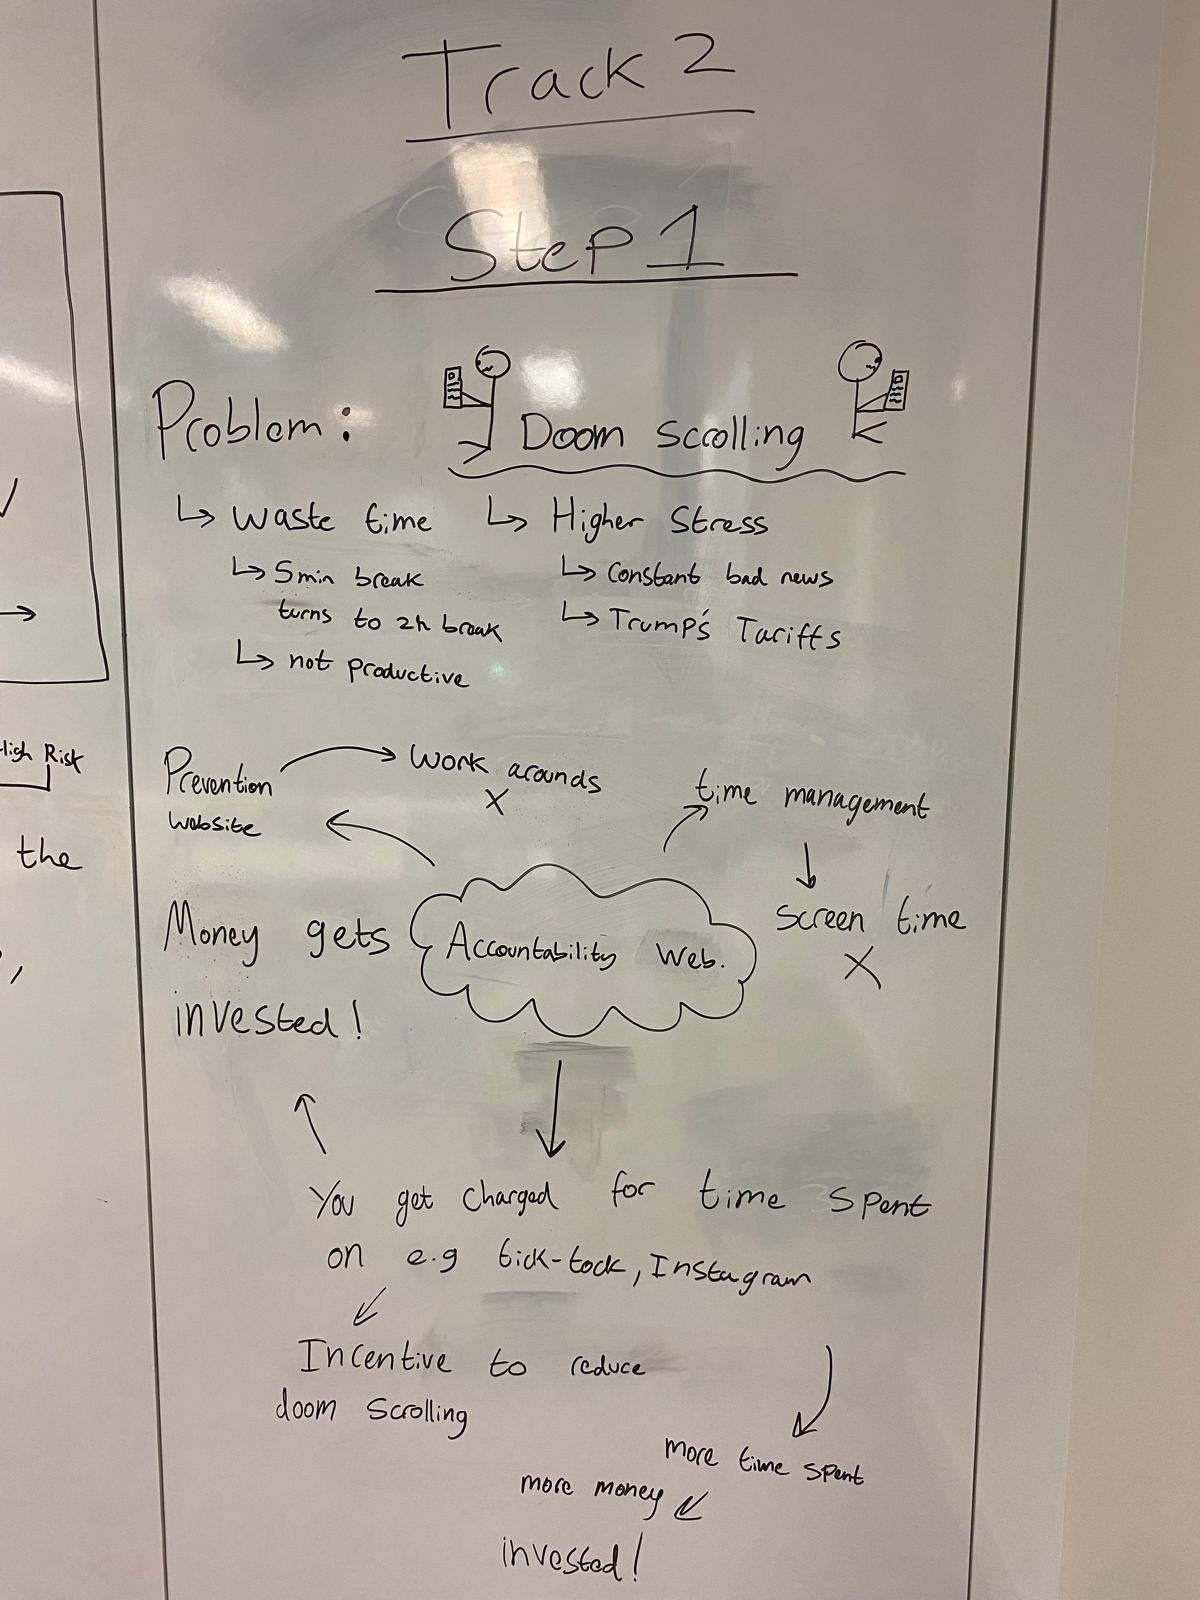 Track 2
Step 1
Problem:
Doom scrolling
↳ waste time
↳ 5min break
turns to 2h break
↳ not productive
↳ Higher Stress
↳ Constant bad news
↳ Trump's Tariffs
Prevention
website
Work arounds
X
time management
screen time
X
Accountability Web.
Money gets
invested!
You get charged for time spent
on e.g tick-tock, Instagram
Incentive to reduce
doom scrolling
more time spent
more money
invested!
High Risk
the